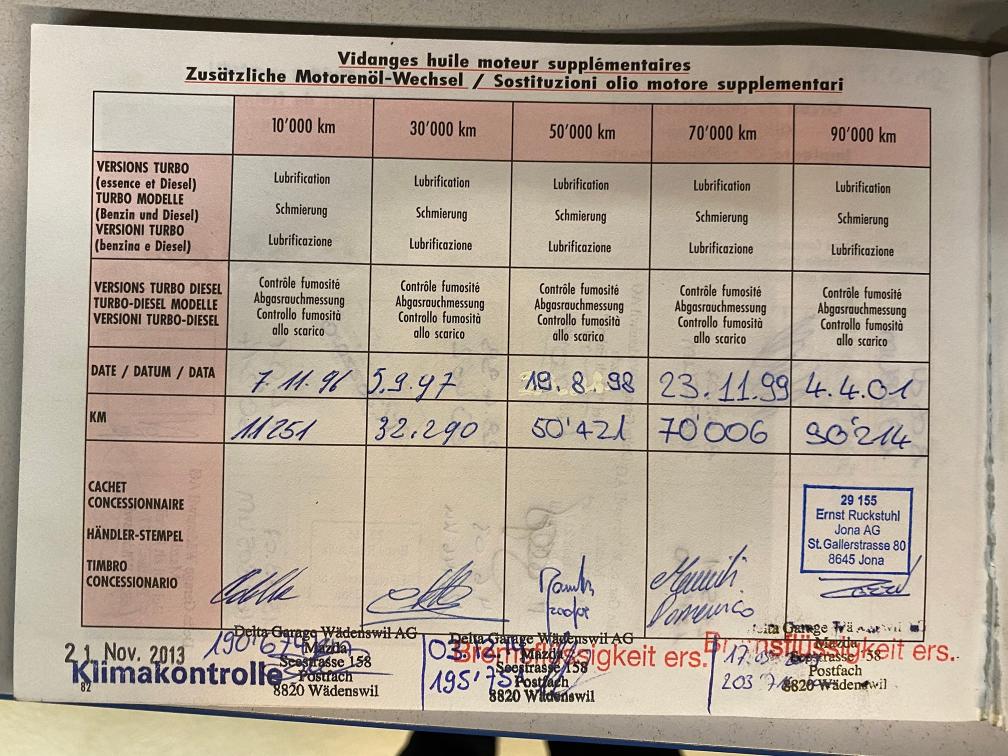 Vidanges huile moteur supplémentaires
Zusätzliche Motorenöl-Wechsel / Sostituzioni olio motore supplementari
10'000 km 30'000 km 50'000 km 70'000 km 90'000 km
VERSIONS TURBO
(essence et Diesel)
TURBO MODELLE
(Benzin und Diesel)
VERSIONI TURBO
(benzina e Diesel)
Lubrification Lubrification Lubrification Lubrification Lubrification
Schmierung Schmierung Schmierung Schmierung Schmierung
Lubrificazione Lubrificazione Lubrificazione Lubrificazione Lubrificazione
VERSIONS TURBO DIESEL
TURBO-DIESEL MODELLE
VERSIONI TURBO-DIESEL
Contrôle fumosité Contrôle fumosité Contrôle fumosité Contrôle fumosité Contrôle fumosité
Abgasrauchmessung Abgasrauchmessung Abgasrauchmessung Abgasrauchmessung Abgasrauchmessung
Controllo fumosità Controllo fumosità Controllo fumosità Controllo fumosità Controllo fumosità
allo scarico allo scarico allo scarico allo scarico allo scarico
DATE / DATUM / DATA 7.11.96 5.9.97 19.8.98 23.11.99 4.4.01
KM 11251 32.290 50'421 70'006 90'214
CACHET
CONCESSIONNAIRE
HÄNDLER-STEMPEL
TIMBRO
CONCESSIONARIO
29 155
Ernst Ruckstuhl
Jona AG
St.Gallerstrasse 80
8645 Jona
Domenico
21 Nov. 2013
Klimakontrolle
82
Delta Garage Wädenswil AG
Mazda
Seestrasse 158
Postfach
8820 Wädenswil
Delta Garage Wädenswil AG
Mazda
Seestrasse 158
Postfach
8820 Wädenswil
Bremsflüssigkeit ers.
Garage
Mazda
Seestrasse 158
Postfach
8820 Wädenswil
Bremsflüssigkeit ers.